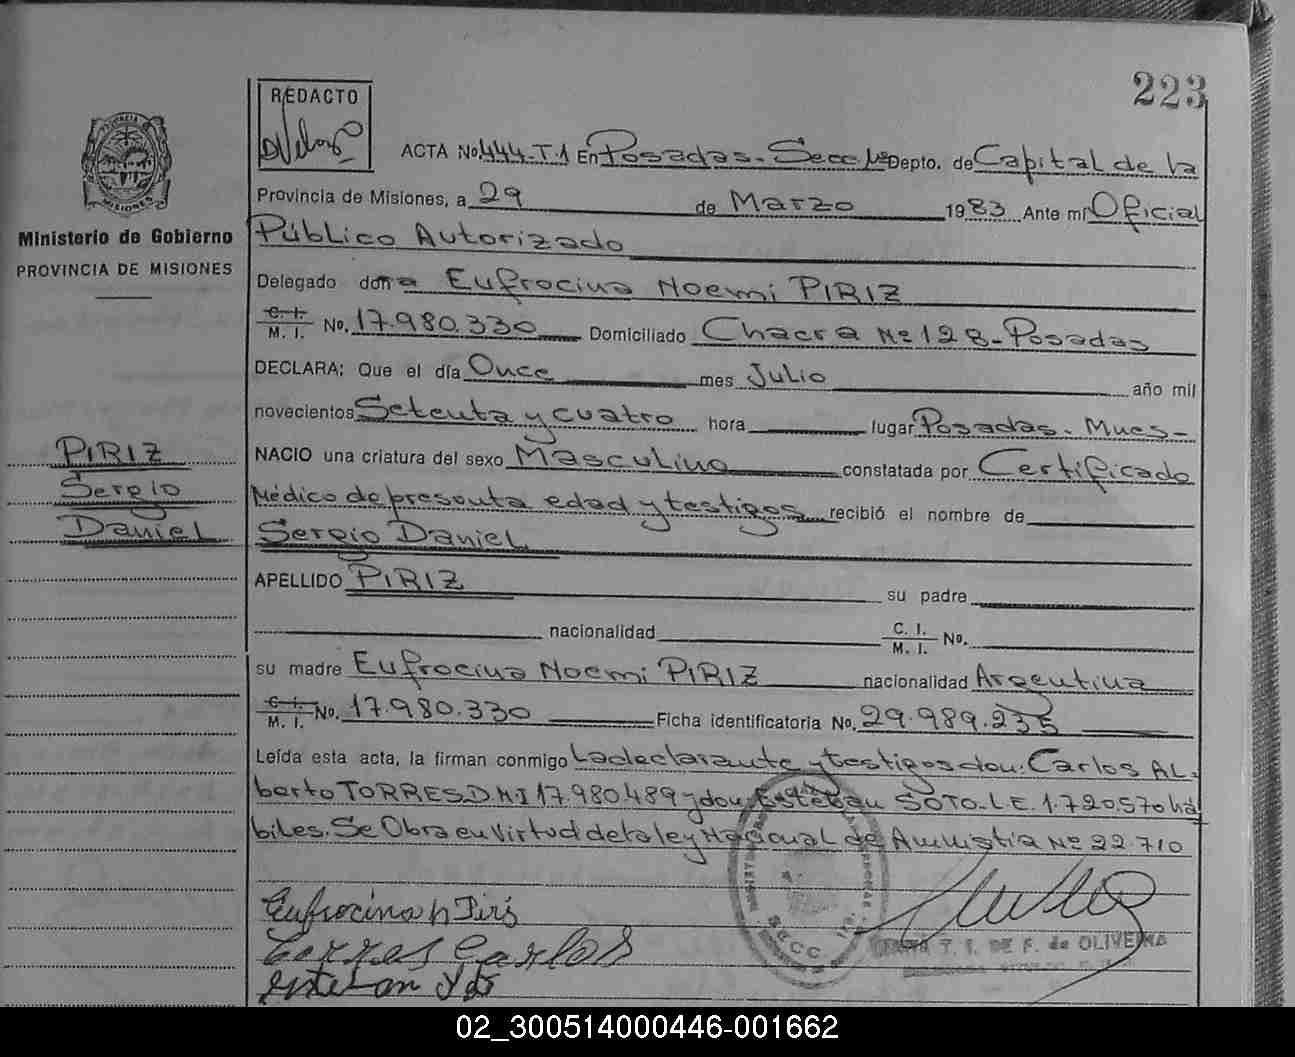 223
REDACTO
ACTA No. 444-T.1 En Posadas- Secc 1a Depto. de Capital de la
Provincia de Misiones, a 29 de Marzo 1983 Ante mí Oficial
Público Autorizado
Delegado doña Eufrocina Noemi PIRIZ
C. I. M. I. No. 17.980.330 Domiciliado Chacra Nº 128-Posadas
DECLARA: Que el día Once mes Julio año mil
novecientos Setenta y cuatro hora lugar Posadas. Mnes-
NACIO una criatura del sexo Masculino constatada por Certificado
Médico de presunta edad y testigos recibió el nombre de
Sergio Daniel
APELLIDO PIRIZ su padre
nacionalidad C. I. M. I. No.
su madre Eufrocina Noemi PIRIZ nacionalidad Argentina
C. I. M. I. No. 17.980.330 Ficha identificatoria No. 29.989.235
Leída esta acta, la firman conmigo La declarante y testigos don: Carlos Al-
berto TORRES D.N.I 17.980.489 y don Esteban SOTO-L.E. 1.720.570 há
biles. Se Obra en virtud de la ley Nacional de Amnistía Nº 22.710
Eufrocina n Piris
Torres Carlos
Esteban
SECC 1ra.
T. I. DE F. de OLIVEIRA
PROVINCIA DE MISIONES
Ministerio de Gobierno
PROVINCIA DE MISIONES
PIRIZ
Sergio
Daniel
02_300514000446-001662